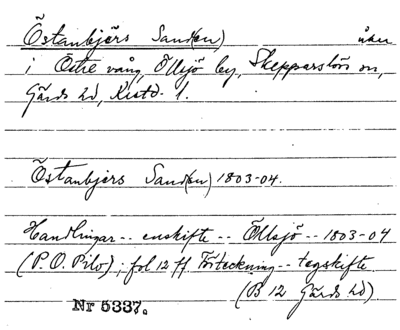 Östanbjers Sand(en) åker
i Östre vång, Öllsjö by, Skepparslövs sn,
Gärds hd, Kristd. l.
Östanbjers Sand(en) 1803-04.
Handlingar -- enskifte -- Öllsjö -- 1803-04
(P. O. Pilo), fol 12 ff Förteckning -- tegskifte
(B 12 Gärds hd)
Nr 5337.